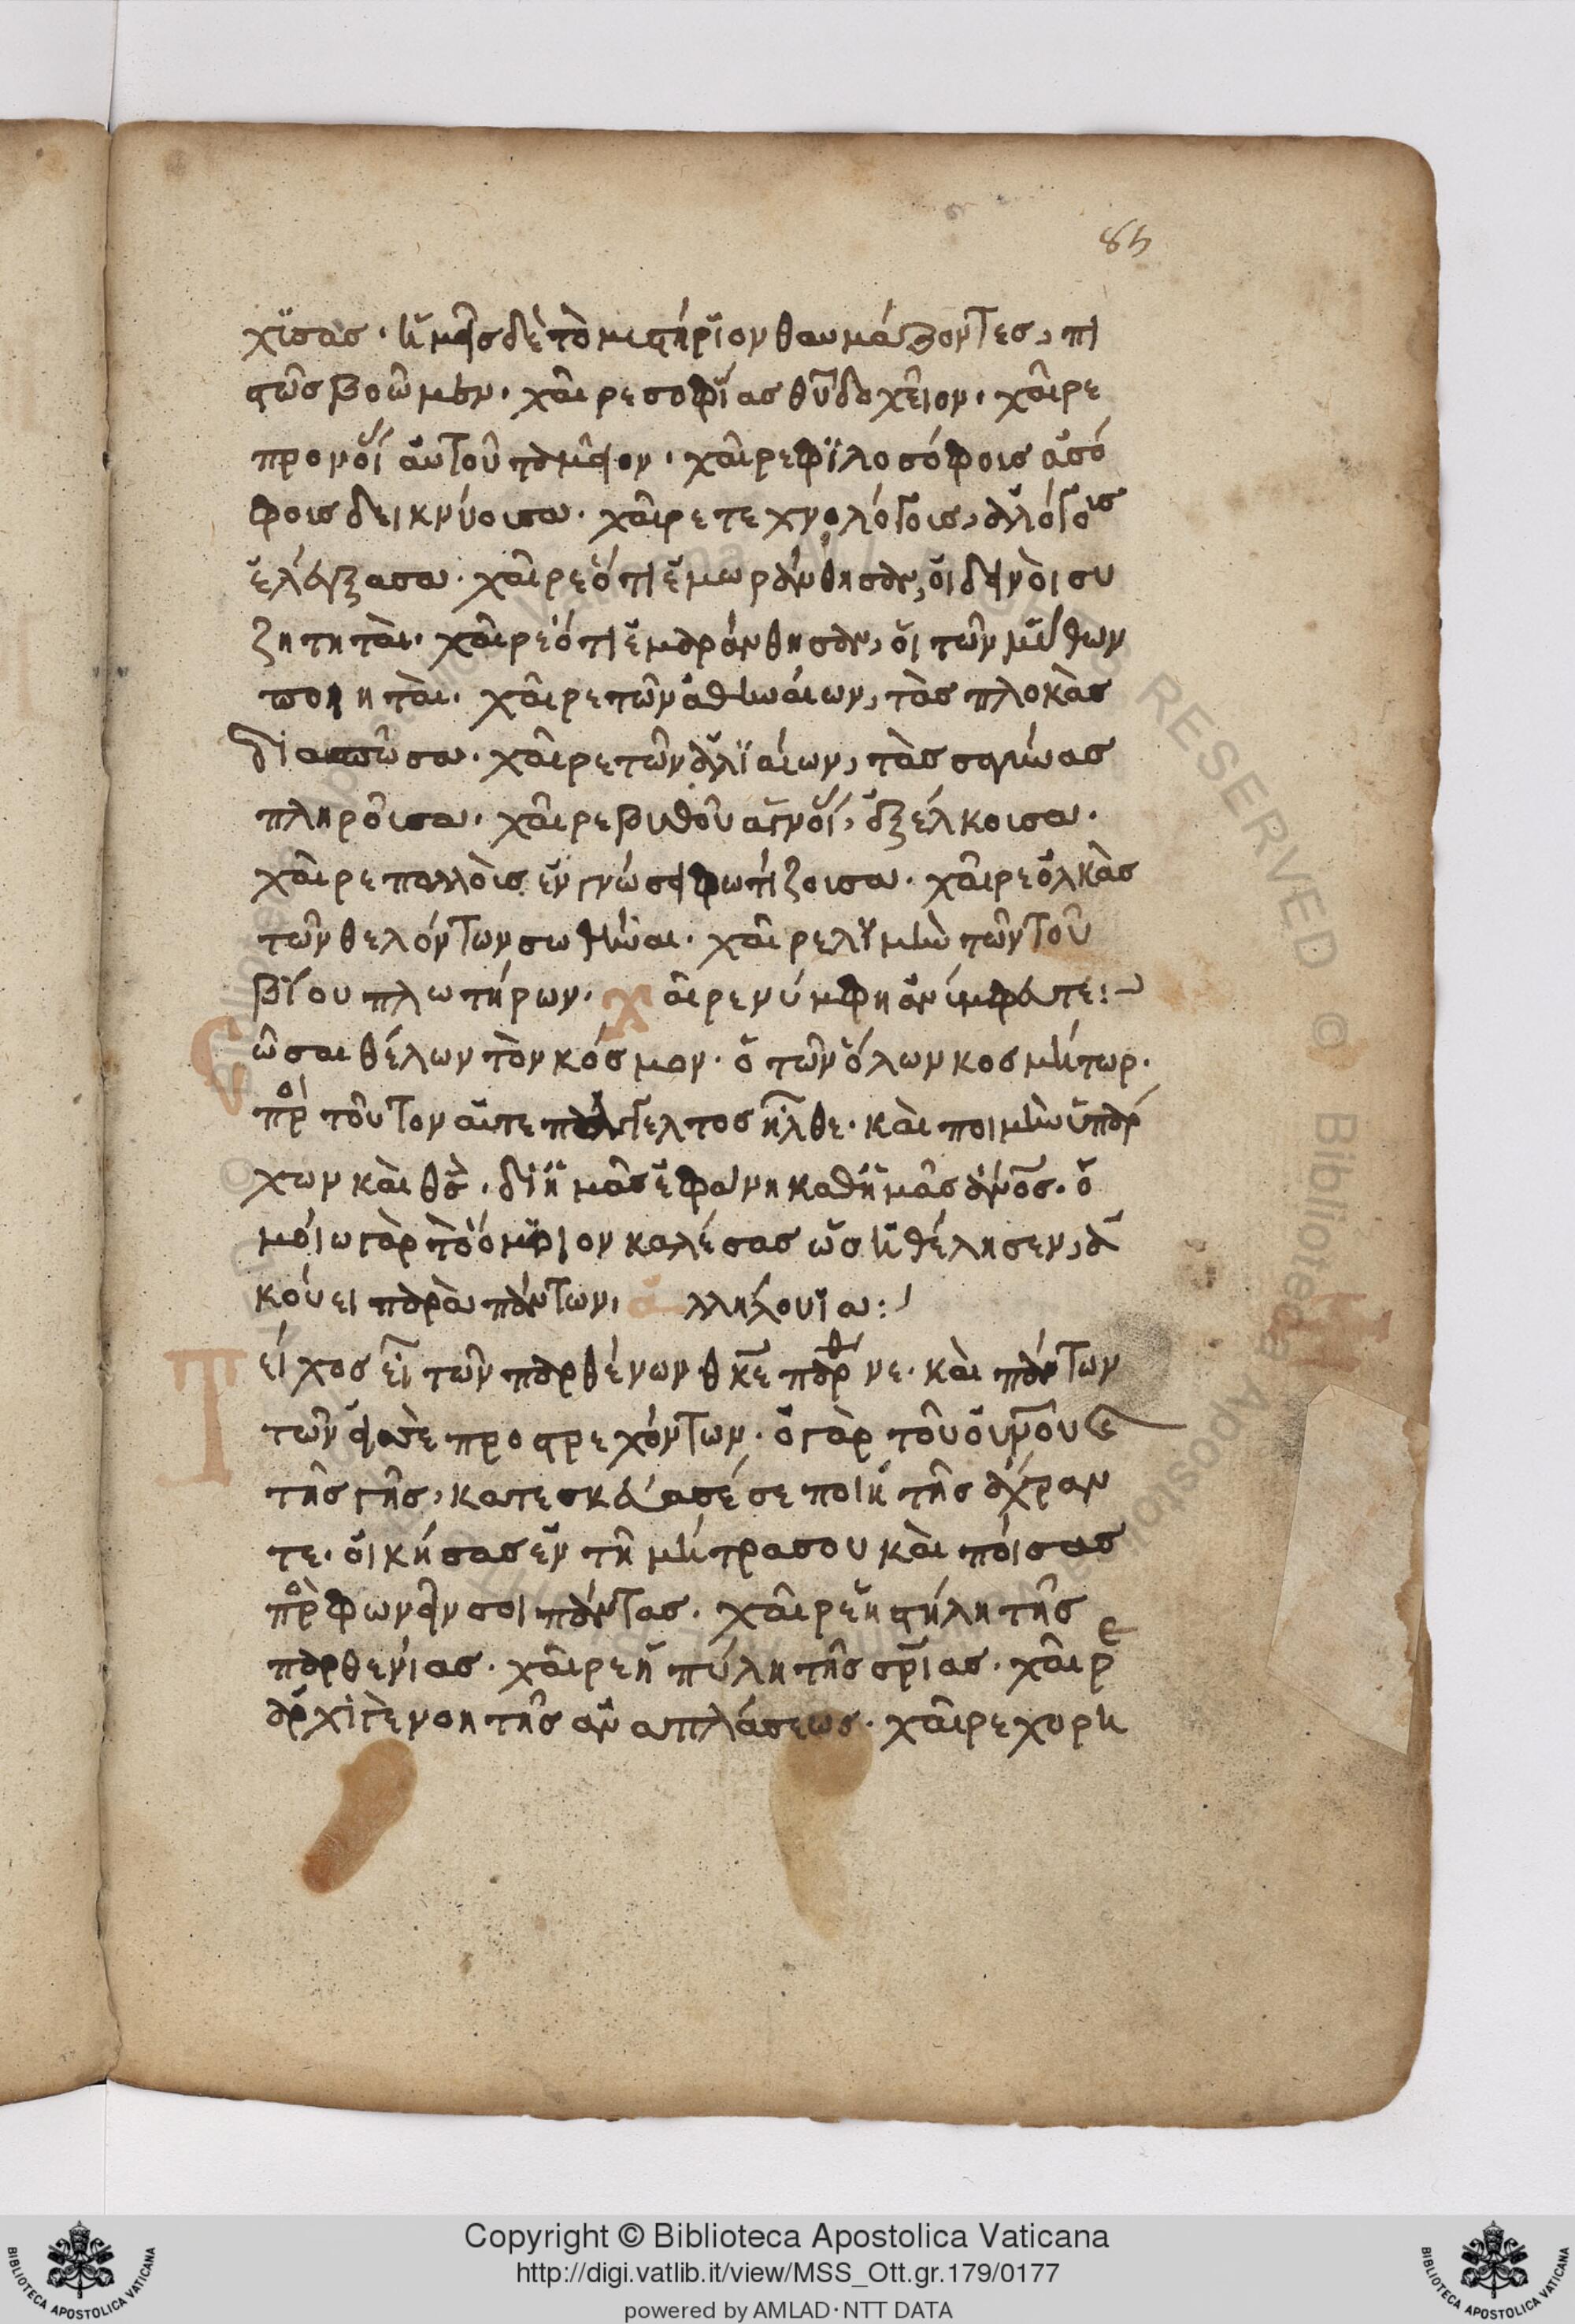 85
χϊσας· ἡμεῖς δὲ τὸ μιστήριον θαυμάζοντες, πι
στῶς βοῶμεν· χαῖρε σοφίας θ̅υ̅ δοχεῖον· χαῖρε
προνοί αὐτοῦ ταμεῖον· χαῖρε φϊλοσόφοις ἀσό
φοις δεικνύοισα· χαῖρε τεχνολόγοις, ἀλόγοις
ἐλέγξασα· χαῖρε ὅτι ἐμωράνθησαν, οἱ δεινοὶ συ
ζητηταὶ· χαῖρε ὅτι ἐμαράνθησαν, οἱ τῶν μύθων
ποιηταὶ· χαῖρε τῶν ἀθηναίων, τὰς πλοκὰς
διασπῶσα· χαῖρε τῶν ἁλϊαίων, τὰς σαγήνας
πληροῖσα· χαῖρε βυθοῦ ἀγνοί, ἐξέλκοισα·
χαῖρε πολλοὶς ἐν γνώσει φωτίζοισα· χαῖρε ὁλκὰς
τῶν θελόντων σωθῆναι· χαῖρε λϊμὴν τῶν τοῦ
βίου πλωτήρων· χαῖρε νύμφη ἀνίμφευτε:
ῶσαι θέλων τὸν κόσμον· ὁ τῶν ὅλων κοσμήτωρ·
πρ̅ο̅ τοῦτον αὐτεπάγγελτος ἦλθε· καὶ ποιμὴν ὑπάρ
χων καὶ θ̅ς̅· δι ἡμᾶς ἐφάνη καθ ἡμᾶς ἄν̅ο̅ς̅· ὁ
μοίω γὰρ τὸ ὅμοιον καλέσας ὡς ἠθέλησεν, ἀ
κούει παρὰ πάντων, ἀλληλουϊα:
Τεῖχος εἶ τῶν παρθένων θ̅κ̅ε̅ παρθνε· καὶ πάντων
τῶν εἰς σὲ προστρεχόντων· ὁ γὰρ τοῦ οὐ̅ν̅οῦ καὶ
τῆς γῆς, κατεσκεύασέ σε ποιη τῆς ἄχραν
τε· οἰκήσας ἐν τῆ μήτρα σου καὶ ποίσας
πρ̅ο̅ φωνεῖν σοι πάντας· χαῖρε ἡ στήλη τῆς
παρθενίας· χαῖρε ἡ πύλη τῆς σ̅ρ̅ίας· χαῖρε
ἀρχιγὲ νοη τῆς ἀναπλάσεως· χαῖρε χορη
Copyright © Biblioteca Apostolica Vaticana
http://digi.vatlib.it/view/MSS_Ott.gr.179/0177
powered by AMLAD·NTT DATA
BIBLIOTECA APOSTOLICA VATICANA
BIBLIOTECA APOSTOLICA VATICANA